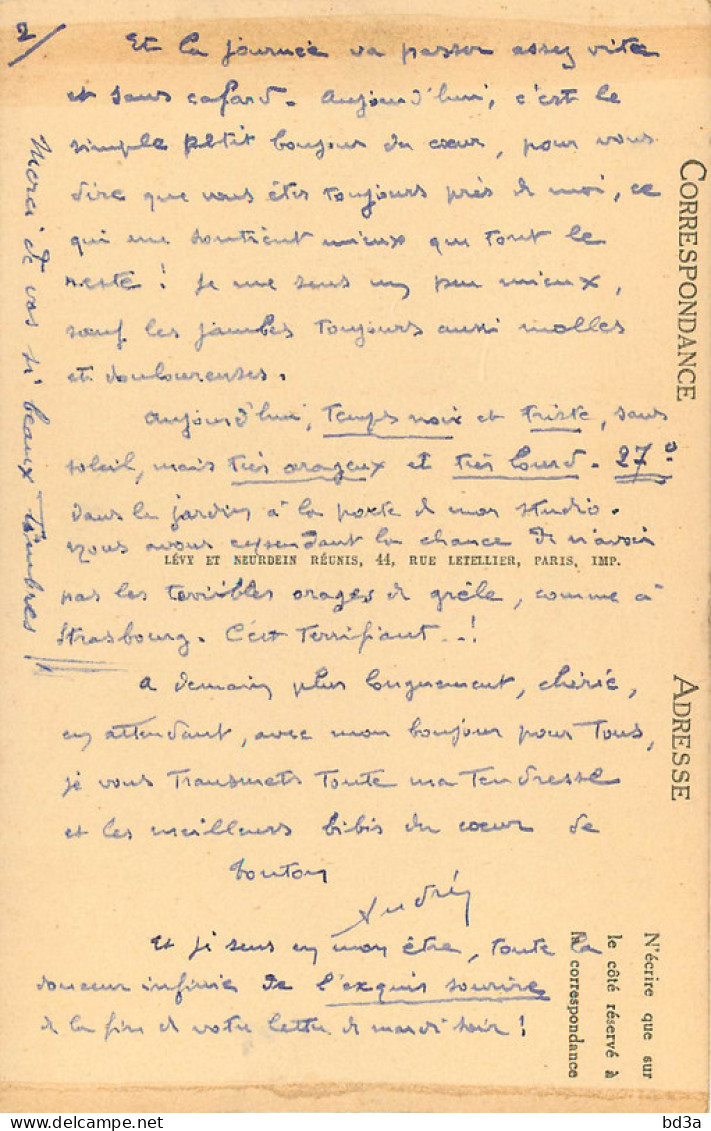 2/
Et la journée va passer assez vite
et sans cafard. Aujourd'hui, c'est le
simple petit bonjour du cœur, pour vous
dire que vous êtes toujours près de moi, ce
qui me soutient mieux que tout le
reste ! Je me sens un peu mieux,
sauf les jambes toujours aussi molles
et douloureuses.
Aujourd'hui, temps noir et triste, sans
soleil, mais très orageux et très lourd. 27°
dans le jardin à la porte de mon studio.
Nous avons cependant la chance de n'avoir
LÉVY ET NEURDEIN RÉUNIS, 44, RUE LETELLIER, PARIS, IMP.
pas les terribles orages de grêle, comme à
Strasbourg. C'est terrifiant...!
A demain plus longuement, chérie,
en attendant, avec mon bonjour pour Tous,
je vous transmets toute ma tendresse
et les meilleurs bibis du cœur de
tonton
André
Et je sens en mon être, toute la
douceur infinie de l'exquis sourire
de la fin de votre lettre de mardi soir !
Merci de vos si beaux timbres
CORRESPONDANCE
ADRESSE
N'écrire que sur
le côté réservé à
la correspondance
bd3a